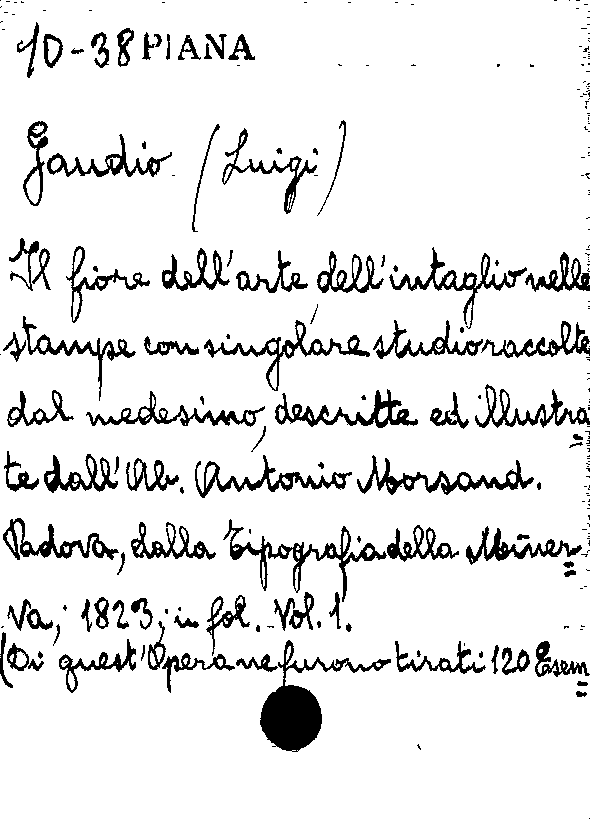 10-38 PIANA
Gaudio (Luigi)
Il fiore dell'arte dell'intaglio nelle
stampe con singolare studio raccolte
dal medesimo, descritte ed illustra=
te dall'Ab. Antonio Morsand.
Padova, dalla Tipografia della Miner=
va, 1823, in fol. Vol. 1.
(Di quest'Opera ne furono tirati 120 Esem=